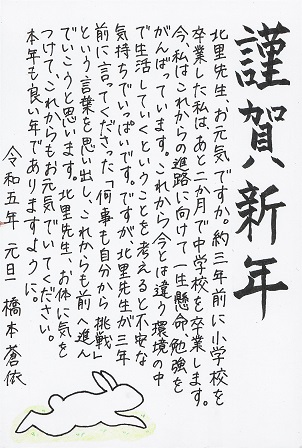 謹賀新年
北里先生、お元気ですか。約三年前に小学校を
卒業した私は、あと二か月で中学校を卒業します。
今、私はこれからの進路に向けて一生懸命、勉強を
がんばっています。これから今とは違う環境の中
で生活していくということを考えると不安な
気持ちでいっぱいです。ですが北里先生が三年
前に言ってくださった「何事も自分から挑戦」
という言葉を思い出し、これからも前へ進ん
でいこうと思います。北里先生、お体に気を
つけて、これからもお元気でいてください。
本年も良い年でありますように。
令和五年 元旦 橋本蒼依